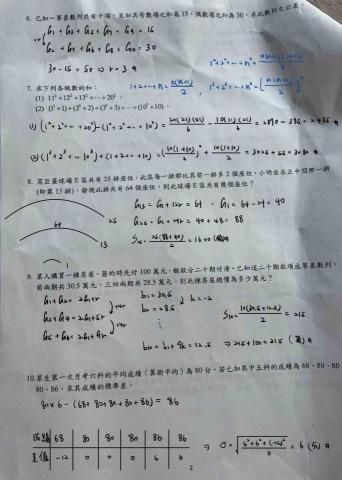 6. 已知一等差數列共有十項,且知其奇數項之和為15,偶數項之和為30,求此數列之公差。
G1+G3+G5+G7+G9=15
G2+G4+G6+G8+G10=30
30-15=5r ⇒ r=3 #
1²+2²+…+n²=n(n+1)(2n+1)/6
7. 求下列各級數的和:
1+2+…+n=n(n+1)/2, 1³+2³+…+n³=[n(n+1)/2]²
(1) 11²+12²+13²+…+20²。
(2) (1³+1)+(2³+2)+(3³+3)+…+(10³+10)。
(1) (1²+2²+…+20²)-(1²+2²+…+10²)=20(21)(41)/6-10(11)(21)/6=2870-385=2485 #
(2) (1³+2³+…+10³)+(1+2+…+10)=[10(1+10)/2]²+10(1+10)/2=3025+55=3080 #
8. 某巨蛋球場E區共有25排座位,此區每一排都比其前一排多2個座位,小明坐在正中間那一排
(即第13排),發現此排共有64個座位,則此球場E區共有幾個座位?
G13=G1+12r=64, G1=64-24=40
G25=G1+24r=40+48=88
S25=25(88+40)/2=1600(個)#
25
64
13
1
9. 某人購買一棟房屋,簽約時先付100萬元,餘款分二十期付清,已知這二十期款項成等差數列,
前兩期共30.5萬元,三四兩期共28.5萬元,則此棟房屋總價為多少萬元?
G1+G2=2G1+r
G3+G4=2G1+5r
G5+G6=2G1+9r
+4r
+4r
b1=30.5
b2=28.5
k=-2
b10=b1+9k=12.5
S10=10(30.5+12.5)/2=215
⇒ 215+100=315(萬)#
10. 某生第一次月考六科的平均成績(算術平均)為80分,若已知其中五科的成績為68、80、80、
80、86,求其成績的標準差。
80×6-(68+80+80+80+86)=86
成績 68 80 80 80 86 86
差值 -12 0 0 0 6 6
⇒ σ=√(6²+6²+(-12)²/6)=6(分)#
2